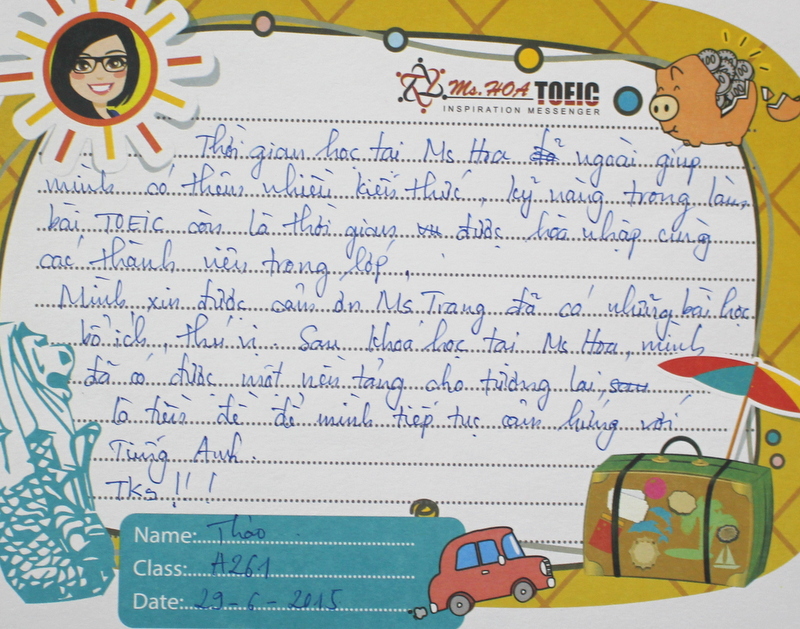 Ms.HOA TOEIC
INSPIRATION MESSENGER
Thời gian học tại Ms Hoa ngoài giúp
mình có thêm nhiều kiến thức, kỹ năng trong làm
bài TOEIC còn là thời gian được hòa nhập cùng
các thành viên trong lớp.
Mình xin được cảm ơn Ms Trang đã có những bài học
bổ ích, thú vị. Sau khoá học tại Ms Hoa, mình
đã có được một nền tảng cho tương lai,
là tiền đề để mình tiếp tục cảm hứng với
Tiếng Anh.
Tks!!!
Name: Thảo
Class: A261
Date: 29-6-2015